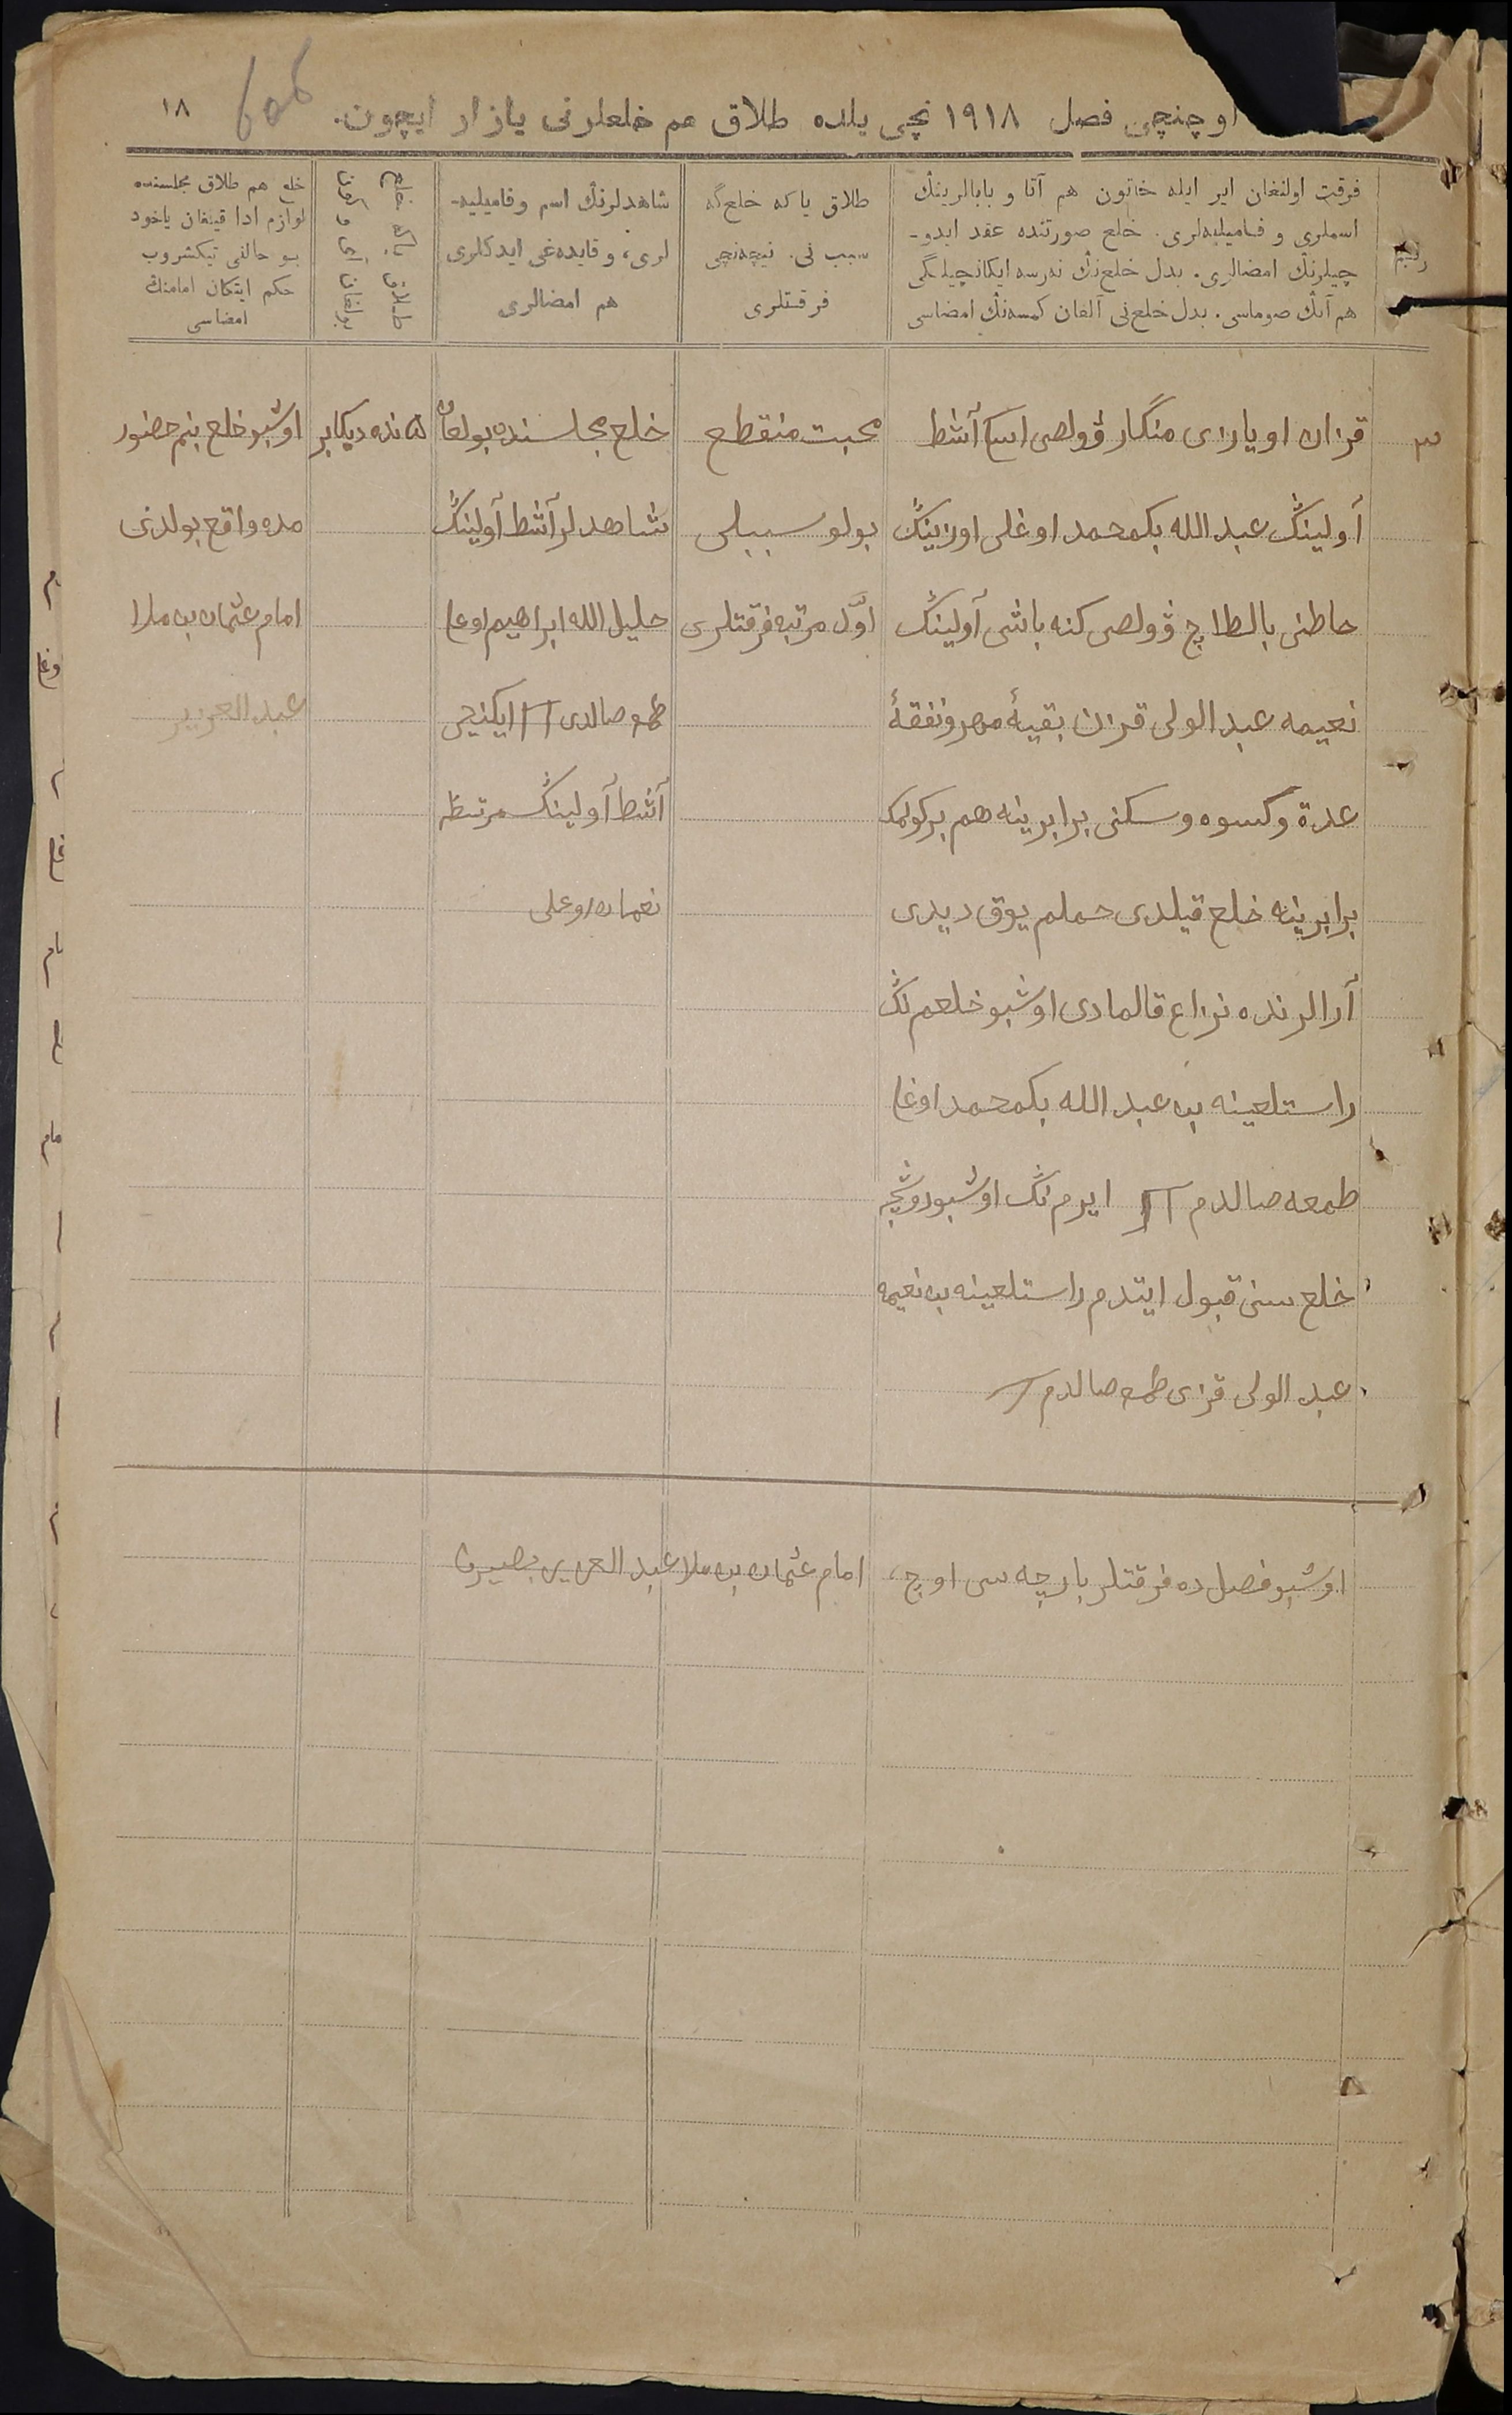 اوچنچی فصل ۱۹۱۸ نچی یلده طلاق هم خلعلرنی یازار ایچون.
۱۸
فرقت اولنغان ایر ایله خاتون هم آتا و بابالرینڭ
اسملری و فامیلیه‌لری. خلع صورتنده عقد ایدو-
چیلرنڭ امضالری. بدل خلع‌نڭ نه‌رسه ایکانچیلگی
هم آنڭ صوماسی. بدل خلع‌نی آلغان کمسه‌نڭ امضاسی
طلاق یا که خلع‌گه
سبب نی. نیچه‌نچی
فرقتلری
شاهدلرنڭ اسم و فامیلیه-
لری، و قایده‌غی ایدکلری
هم امضالری
طلاق یاکه خلع
بولغان آی و کون
خلع هم طلاق مجلسنده
لوازم ادا قیلغان یاخود
بو حالنی تیکشروب
حکم ایتکان امامنڭ
امضاسی
۳
قزان اویازی منگار ڤولصی آشط
أولینڭ عبد الله بکمحمد اوغلی اوزینڭ
خاطنی بالطاچ ڤولصی کنه باشی أولینڭ
نعیمه عبد الولی قزن بقیۀ مهر و نفقۀ
عدة و کسوه و سکنی برابرینه هم بر کولمک
برابرینه خلع قیلدی حملم یوق دیدی
أرالرنده نزاع قالمادی اوشبو خلعم نڭ
راستلغینه بن عبد الله بکمحمد اوغلی
طمغه صالدم ایرم نڭ اوشبو روشچه
خلع سنی قبول ایتدم راستلغینه بن نعیمه
عبد الولی قزی طمغه صالدم
محبت منقطع
بولو سببلی
اوّل مرتبه فرقتلری
خلع مجلسنده بولغان
شاهدلر آشط أولینڭ
خلیل الله ابراهیم اوغلی
طمغه صالدی ایکنچی
آشط أولینڭ
نعمان اوغلی
۵ نده دیکابر
اوشبو خلع بنم حضور
مده واقع بولدی
امام عثمان بن ملا
عبد العزیز
اوشبو فصل ده فرقتلر بارچه سی اوچ،
امام عثمان بن ملا عبد العزیز